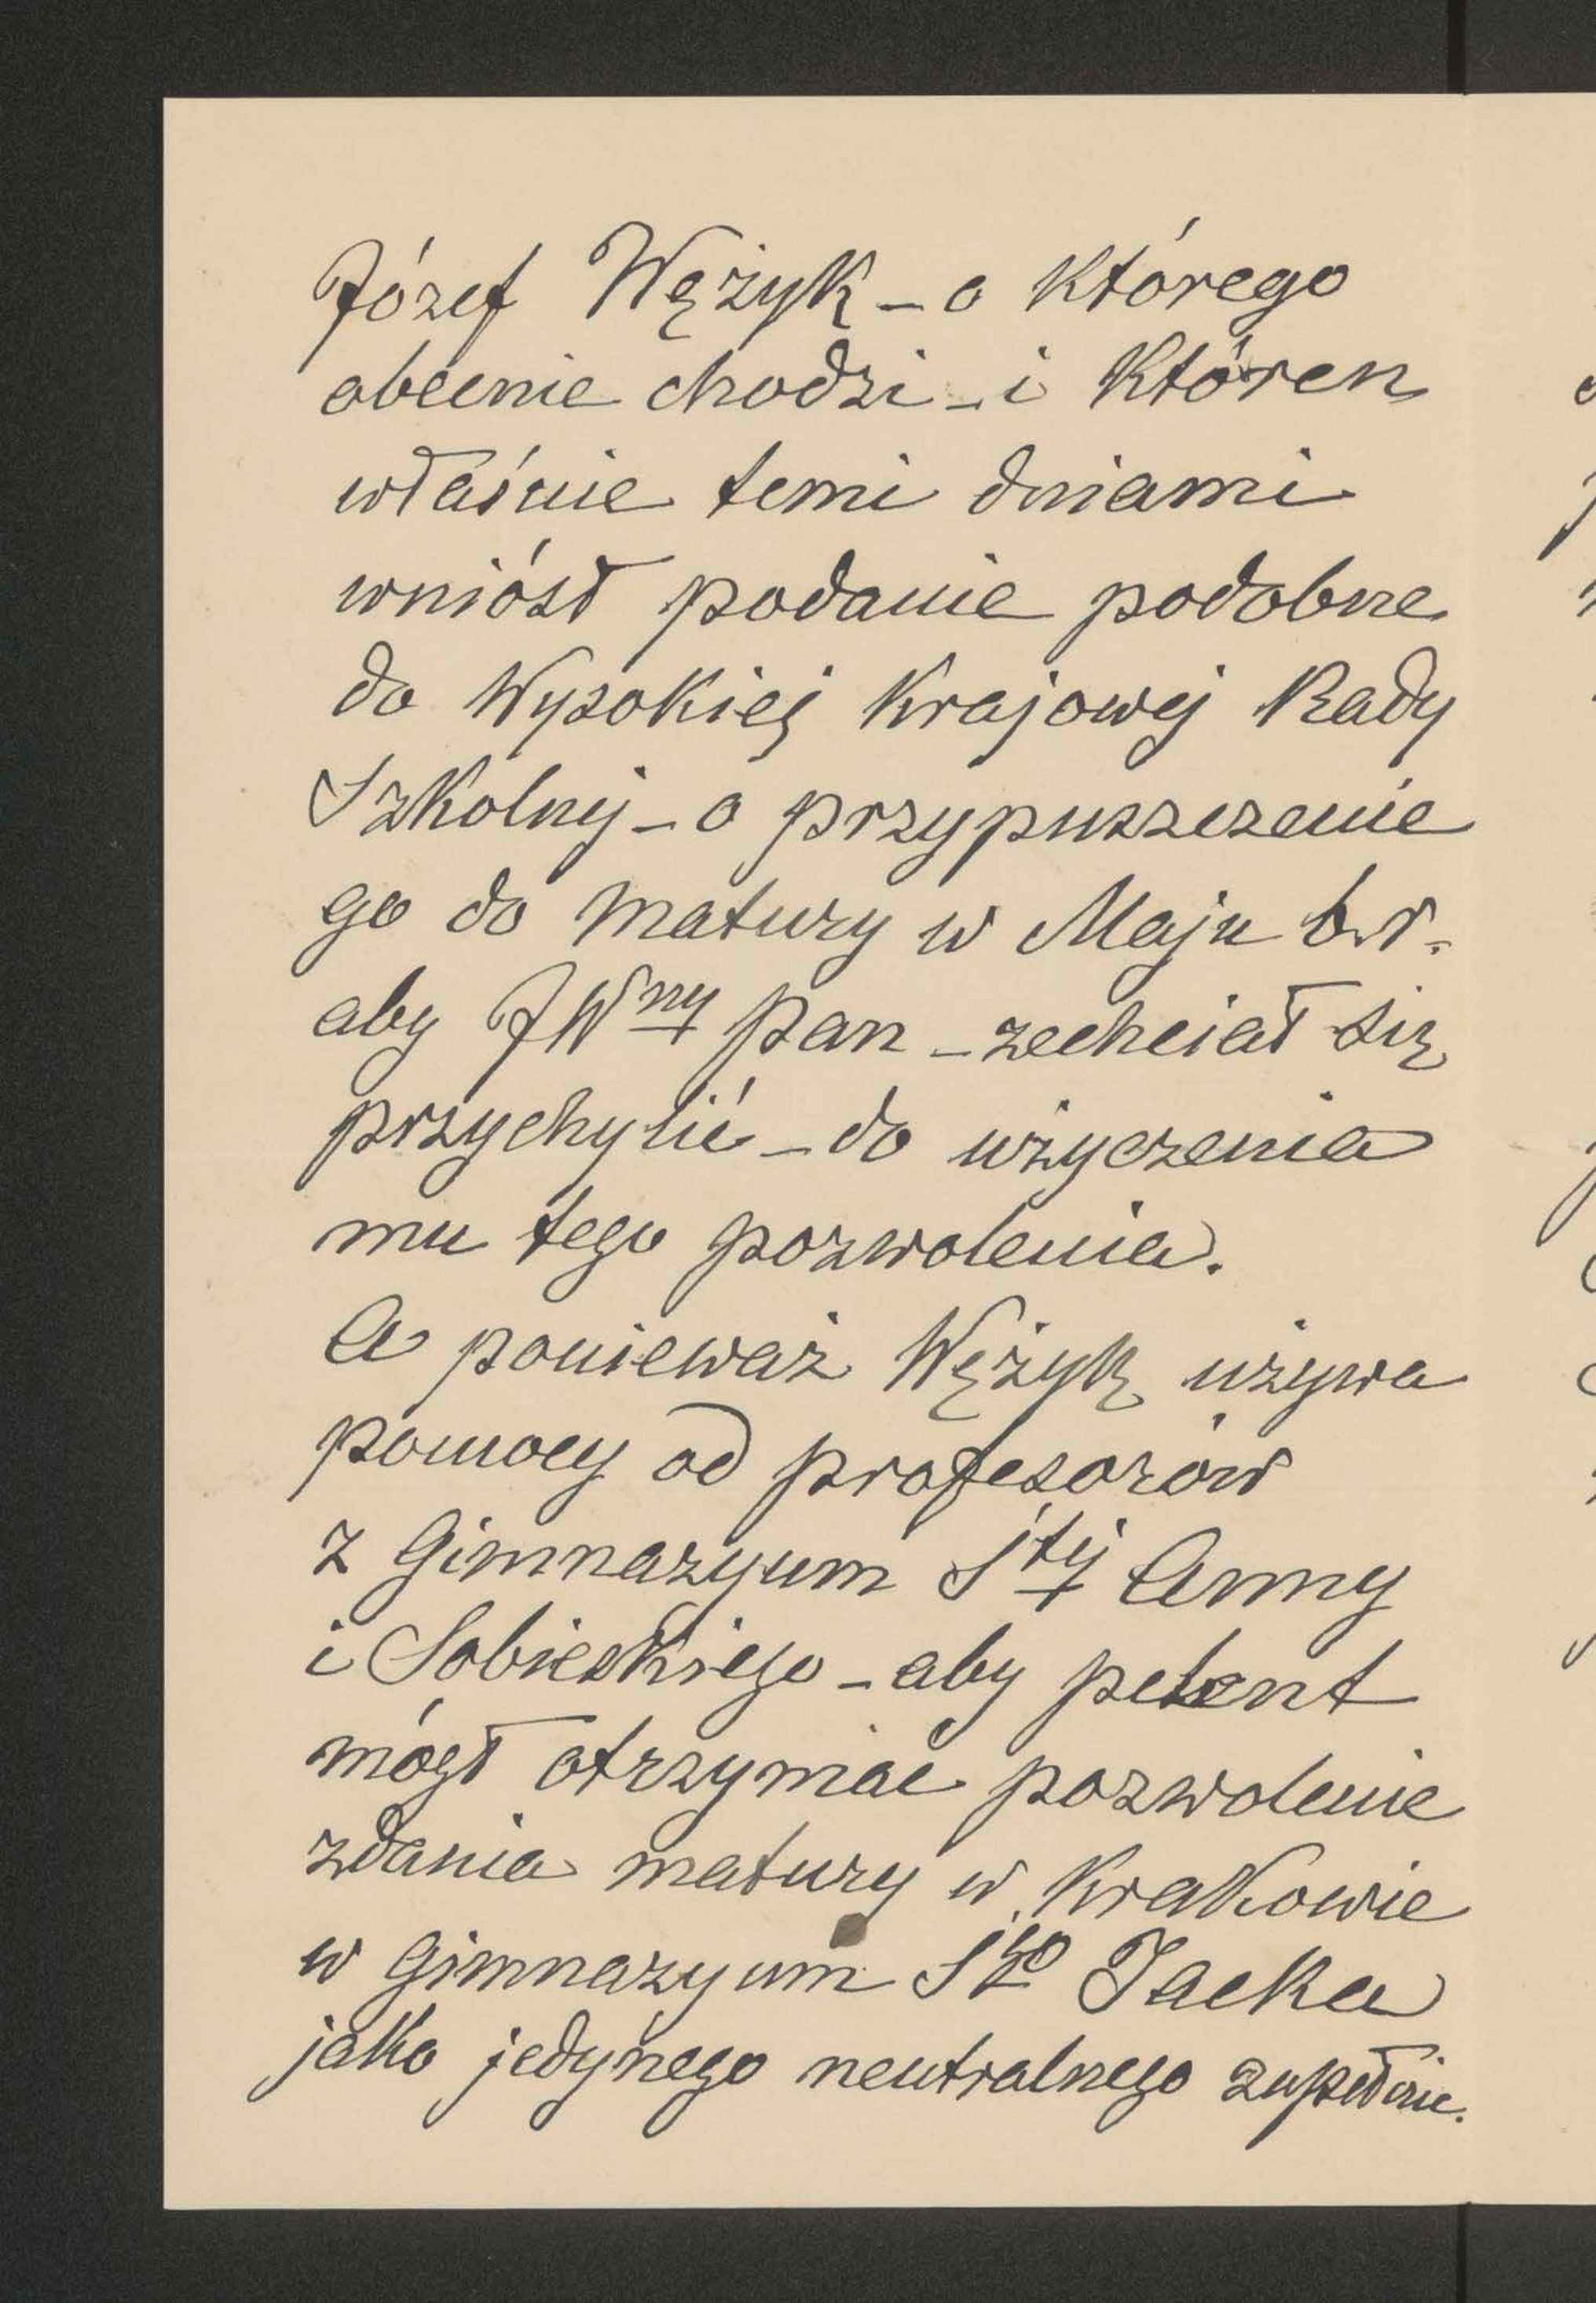 Józef Wężyk – o którego
obecnie chodzi – i któren
właśnie temi dniami
wniósł podanie podobne
do Wysokiej Krajowej Rady
Szkolnej – o przypuszczenie
go do matury w Maju b.r.
aby JWny Pan – zechciał się
przychylić – do użyczenia
mu tego pozwolenia.
A ponieważ Wężyk używa
pomocy od profesorów
z Gimnazyum Stej Anny
i Sobieskiego – aby petent
mógł otrzymać pozwolenie
zdania matury w Krakowie
w Gimnazyum Sgo Jacka
jako jedynego neutralnego zupełnie.